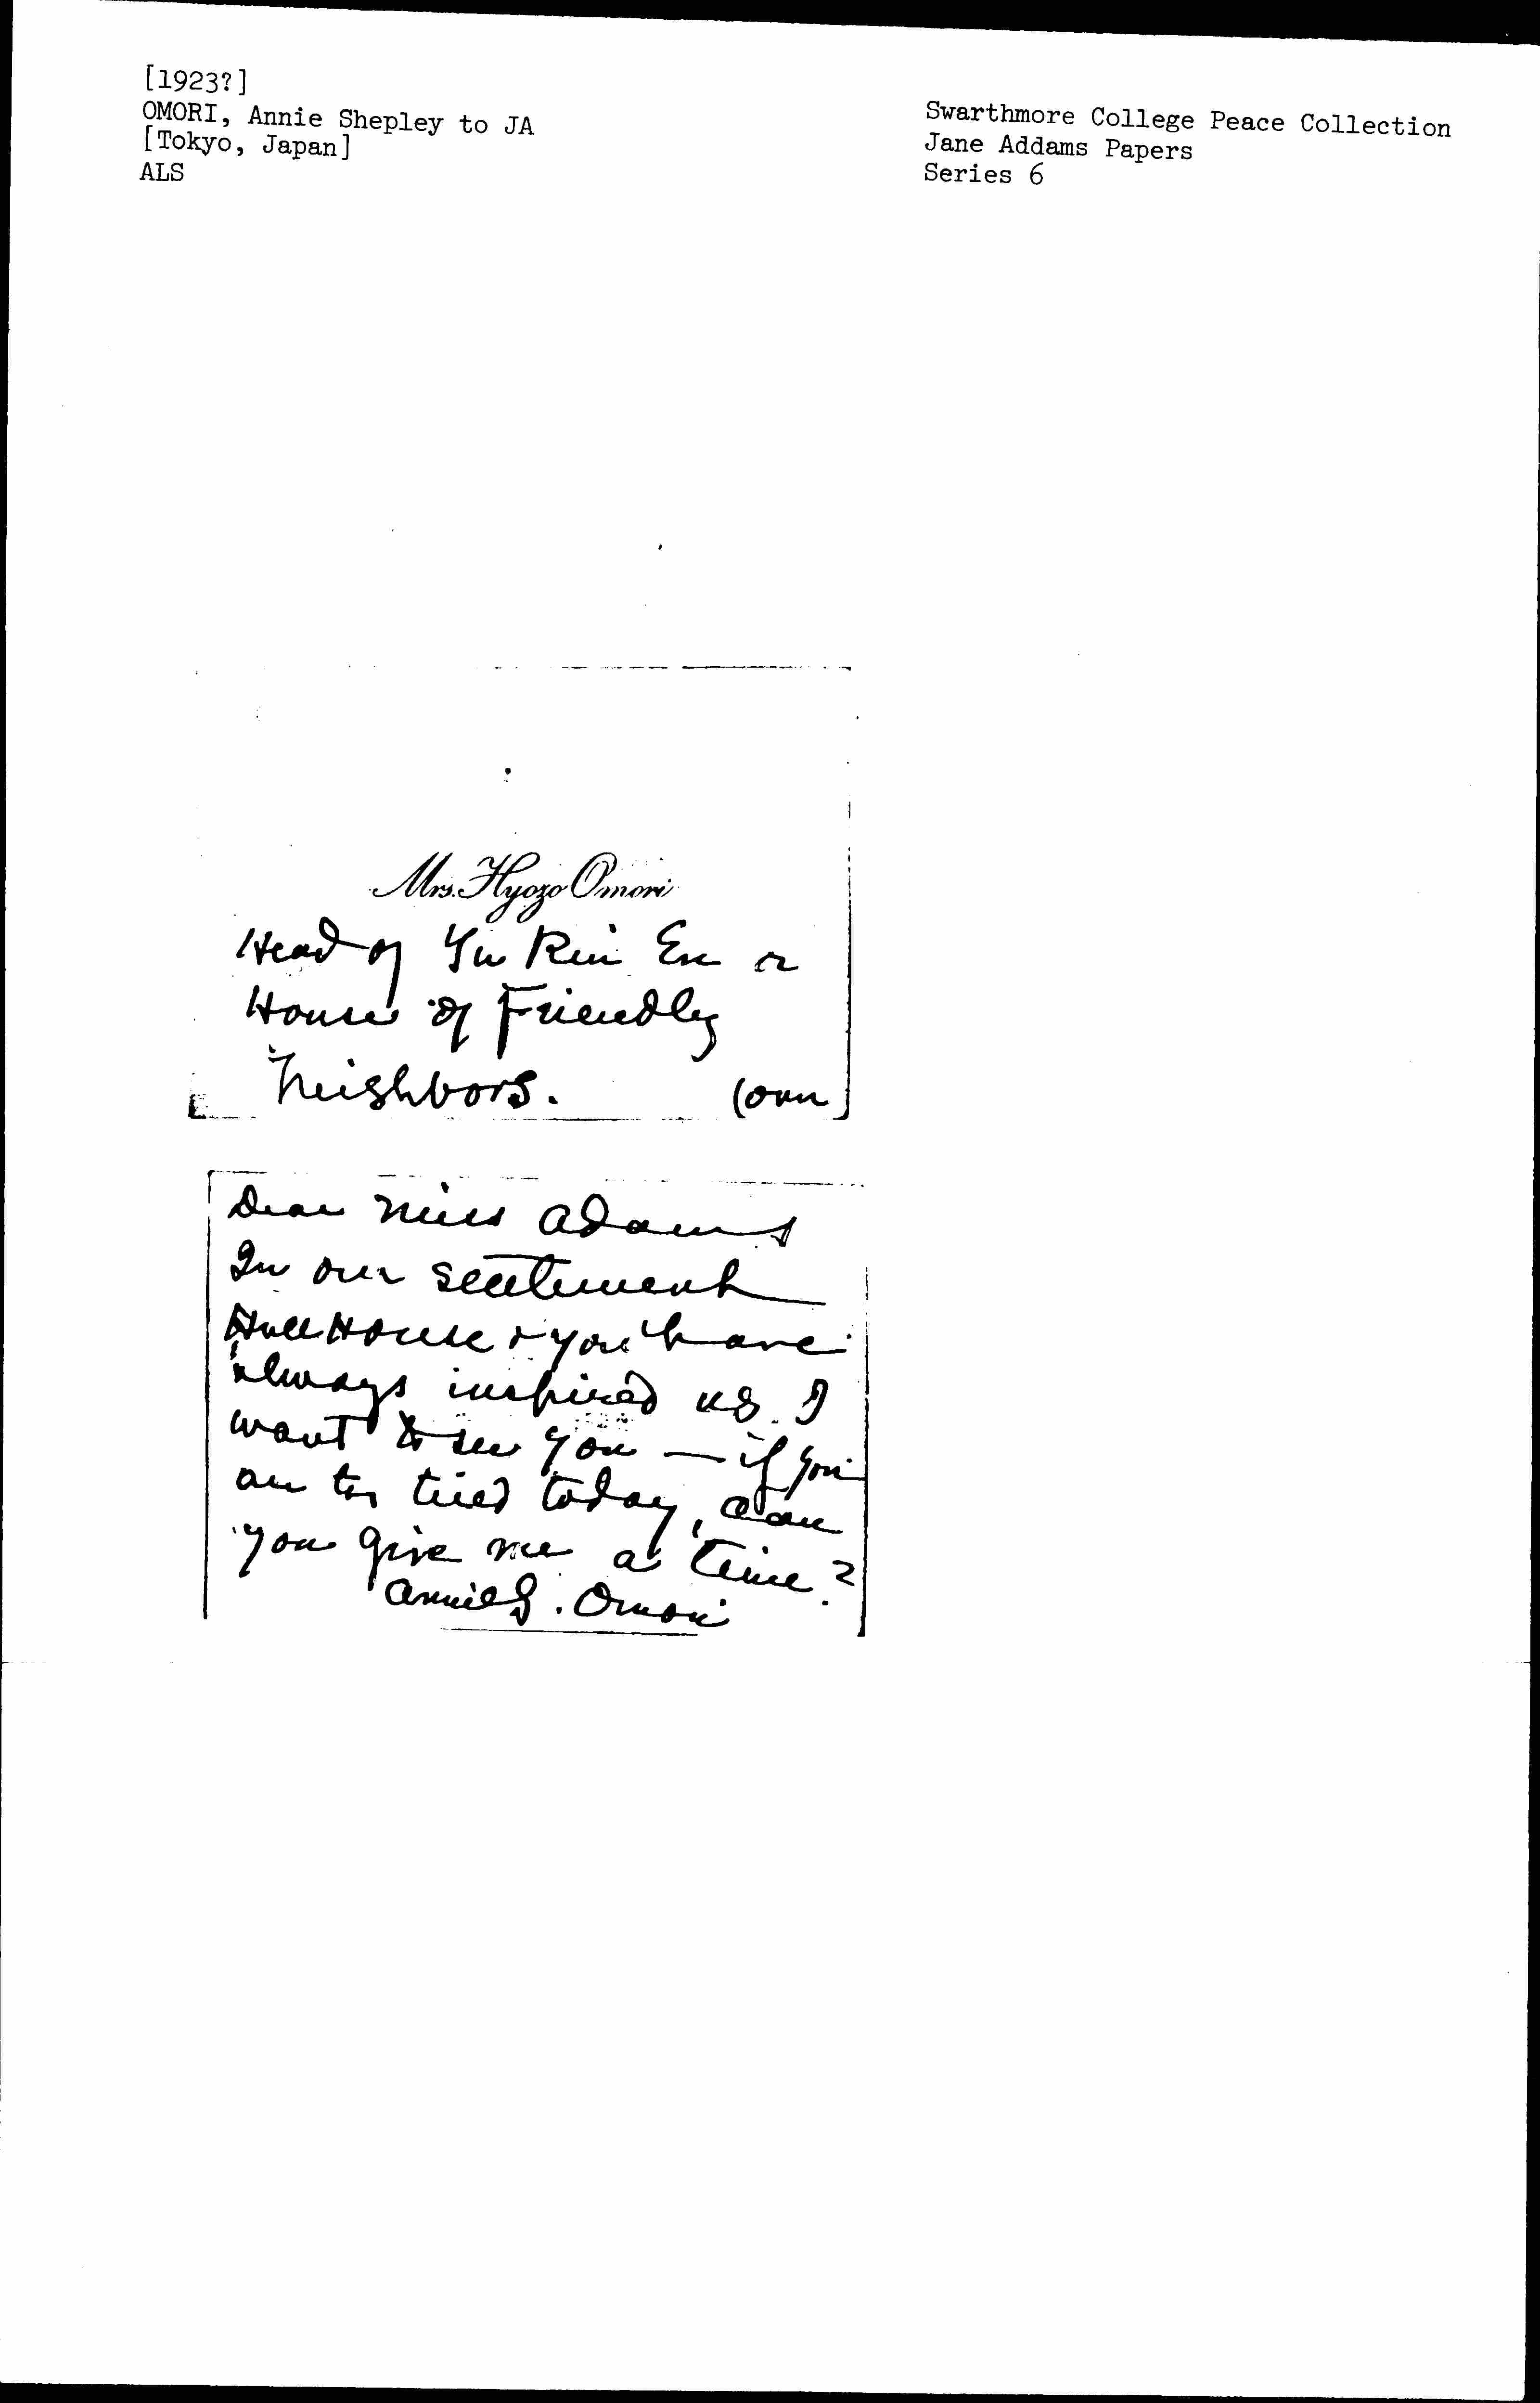 [1923?]
OMORI, Annie Shepley to JA
[Tokyo, Japan]
ALS
Swarthmore College Peace Collection
Jane Addams Papers
Series 6
Mrs. Hyozo Omori
Head of Yu Rin En or
House of Friendly
Neighbors.
(over)
Dear Miss Adams
In our settlement
Hull House & you have
always inspired us. I
want to see you — if you
are too tired today, can
you give me a time?
Annie S. Omori